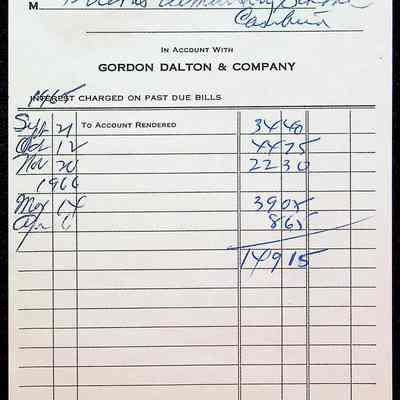 M
IN ACCOUNT WITH
GORDON DALTON & COMPANY
INTEREST CHARGED ON PAST DUE BILLS
1965
Sept 21 TO ACCOUNT RENDERED 34 40
Oct 12 44 75
Nov 20 22 30
1966
Mar 14 39 05
Apr 6 8 65
149 15